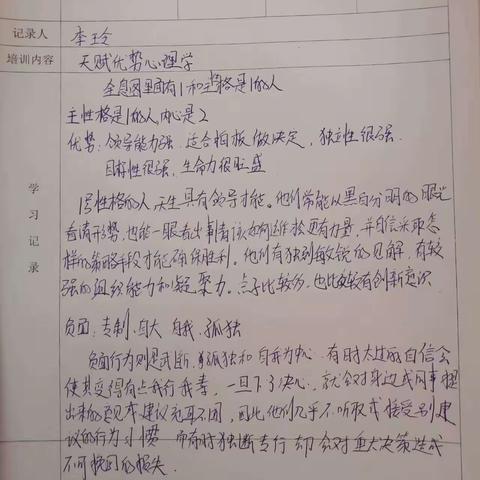 记录人 李玲
培训内容 天赋优势心理学
全息图里面有1和主性格是1的人
主性格是1的人内心是2
优势:领导能力强 适合拍板做决定,独立性很强
目标性很强,生命力很旺盛
学习记录
1号性格的人天生具有领导才能。他们常能以黑白分明的眼光
看清形势,也能一眼看出事情该如何运作更有力量,并自信采取怎
样的策略手段才能确保胜利。他们有独到敏锐的见解,有较
强的组织能力和凝聚力。点子比较多,也比较有创新意识
负面:专制、自大 自我 孤独
负面行为则是武断、孤独和自我为中心。有时太过的自信会
使其变得有点我行我素,一旦下了决心,就会对身边或同事提
出来的意见或建议充耳不闻,因此他们几乎不听取或接受别建
议的行为习惯 而有时独断专行却会对重大决策造成
不可挽回的损失.